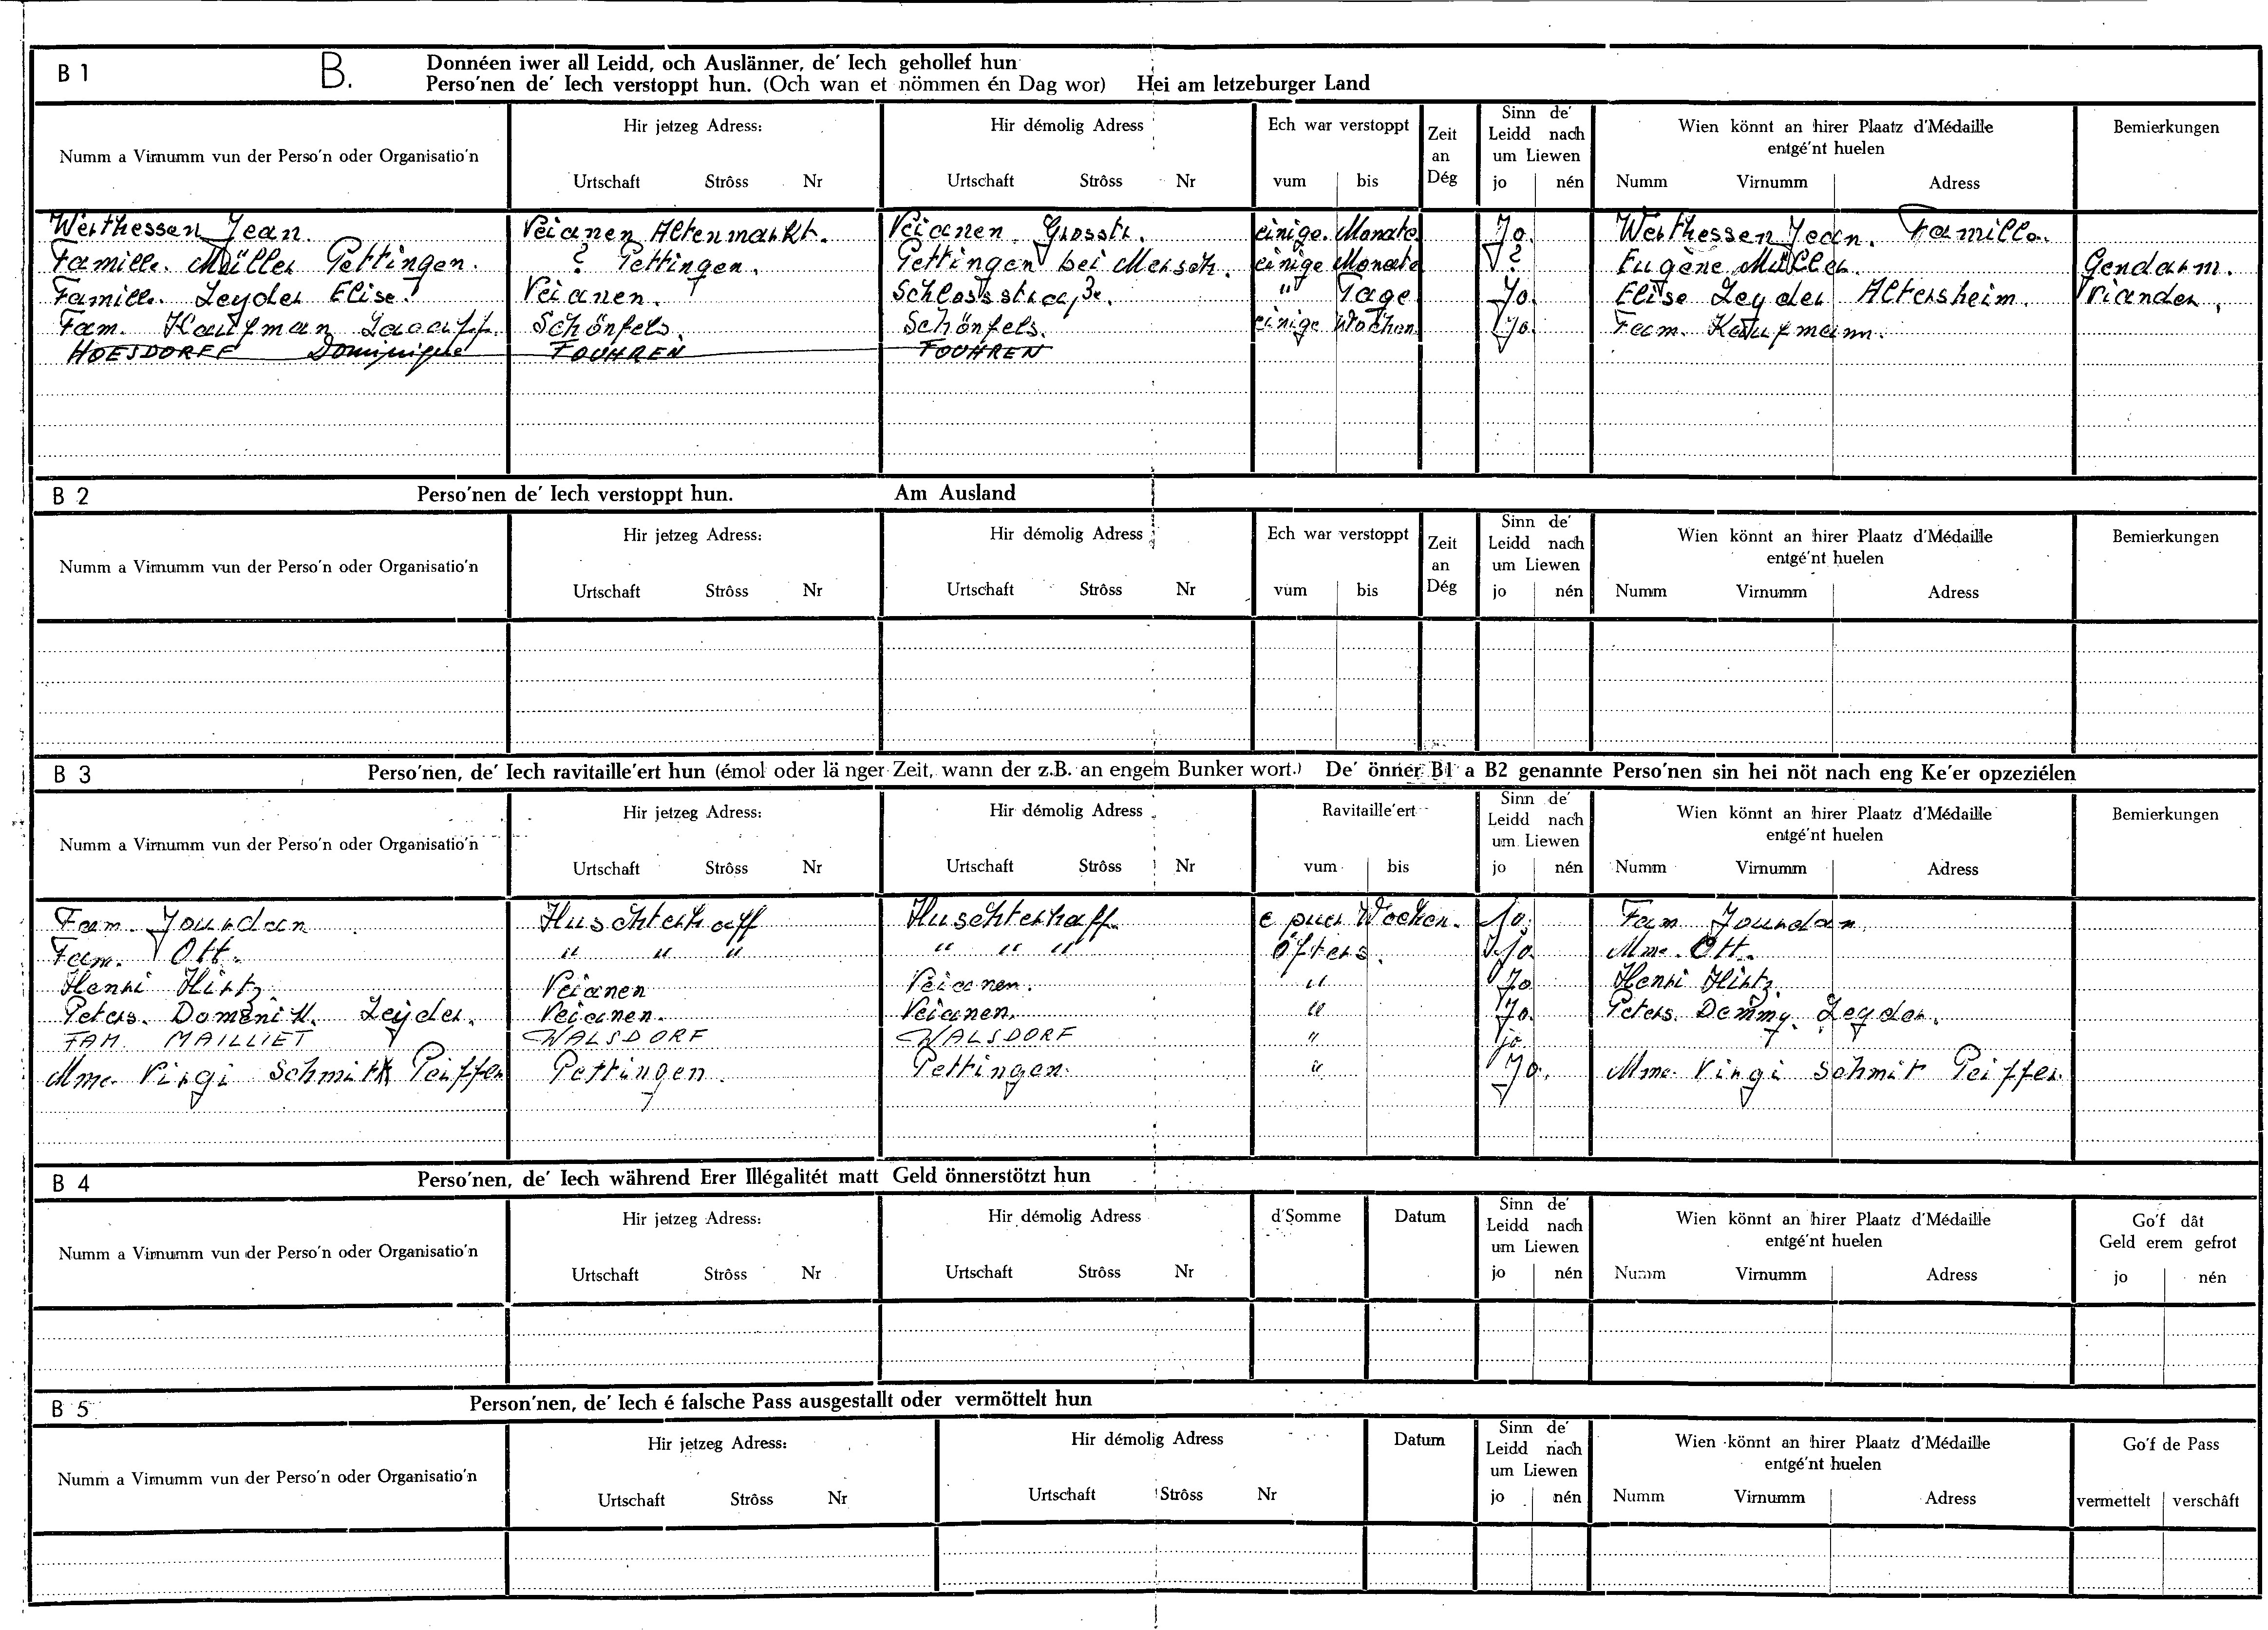 B 1 B. Donnéen iwer all Leidd, och Auslänner, de' Iech gehollef hun
Perso'nen de' Iech verstoppt hun. (Och wan et nömmen én Dag wor) Hei am letzeburger Land
Numm a Virnumm vun der Perso'n oder Organisatio'n
Hir jetzeg Adress:
Urtschaft Strôss Nr
Hir démolig Adress
Urtschaft Strôss Nr
Ech war verstoppt
vum bis
Zeit
an
Dég
Sinn de'
Leidd nach
um Liewen
jo nén
Wien könnt an hirer Plaatz d'Médaille
entgé'nt huelen
Numm Virnumm Adress
Bemierkungen
Jean. Veianen Altenmarkt. Veianen Grosstr. einige Monate Jo. Jean. Famille.
Famille. Müller Pettingen. ? Pettingen. Pettingen bei Mersch. einige Monate ? Eugène Müller. Gendarm.
Famille. Leyder Elise. Veianen. Schlossstraße. " Tage Jo. Elise Leyder Altersheim. Vianden.
Fam. Kaufman Schönfels. Schönfels. einige Wochen Jo. Fam. Kaufmann.
HOESDORFF Dominique FOUHREN FOUHREN
B 2 Perso'nen de' Iech verstoppt hun. Am Ausland
Numm a Virnumm vun der Perso'n oder Organisatio'n
Hir jetzeg Adress:
Urtschaft Strôss Nr
Hir démolig Adress
Urtschaft Strôss Nr
Ech war verstoppt
vum bis
Zeit
an
Dég
Sinn de'
Leidd nach
um Liewen
jo nén
Wien könnt an hirer Plaatz d'Médaille
entgé'nt huelen
Numm Virnumm Adress
Bemierkungen
B 3 Perso'nen, de' Iech ravitaille'ert hun (émol oder länger Zeit, wann der z.B. an engem Bunker wort.) De' önner B1 a B2 genannte Perso'nen sin hei nöt nach eng Ke'er opzeziélen
Numm a Virnumm vun der Perso'n oder Organisatio'n
Hir jetzeg Adress:
Urtschaft Strôss Nr
Hir démolig Adress
Urtschaft Strôss Nr
Ravitaille'ert
vum bis
Sinn de'
Leidd nach
um Liewen
jo nén
Wien könnt an hirer Plaatz d'Médaille
entgé'nt huelen
Numm Virnumm Adress
Bemierkungen
Fam. Jourdan Huschterhaff Huschterhaff. e puer Wochen. Jo. Fam Jourdan
Fam. Ott. " " " " " " öfters. Jo. Mme. Ott.
Henri Hirtz. Veianen Veianen. " Jo Henri Hirtz.
Peters. Domenik. Leyder. Veianen. Veianen. " Jo. Peters. Demmy. Leyder.
FAM. MAILLIET WALSDORF WALSDORF " jo
Mme. Virgi Schmitt Peiffer Pettingen. Pettingen. " Jo. Mme. Virgi Schmit Peiffer.
B 4 Perso'nen, de' Iech während Erer Illégalitét matt Geld önnerstötzt hun
Numm a Virnumm vun der Perso'n oder Organisatio'n
Hir jetzeg Adress:
Urtschaft Strôss Nr
Hir démolig Adress
Urtschaft Strôss Nr
d'Somme
Datum
Sinn de'
Leidd nach
um Liewen
jo nén
Wien könnt an hirer Plaatz d'Médaille
entgé'nt huelen
Numm Virnumm Adress
Go'f dât
Geld erem gefrot
jo nén
B 5 Person'nen, de' Iech é falsche Pass ausgestallt oder vermöttelt hun
Numm a Virnumm vun der Perso'n oder Organisatio'n
Hir jetzeg Adress:
Urtschaft Strôss Nr
Hir démolig Adress
Urtschaft Strôss Nr
Datum
Sinn de'
Leidd nach
um Liewen
jo nén
Wien könnt an hirer Plaatz d'Médaille
entgé'nt huelen
Numm Virnumm Adress
Go'f de Pass
vermettelt verschâft